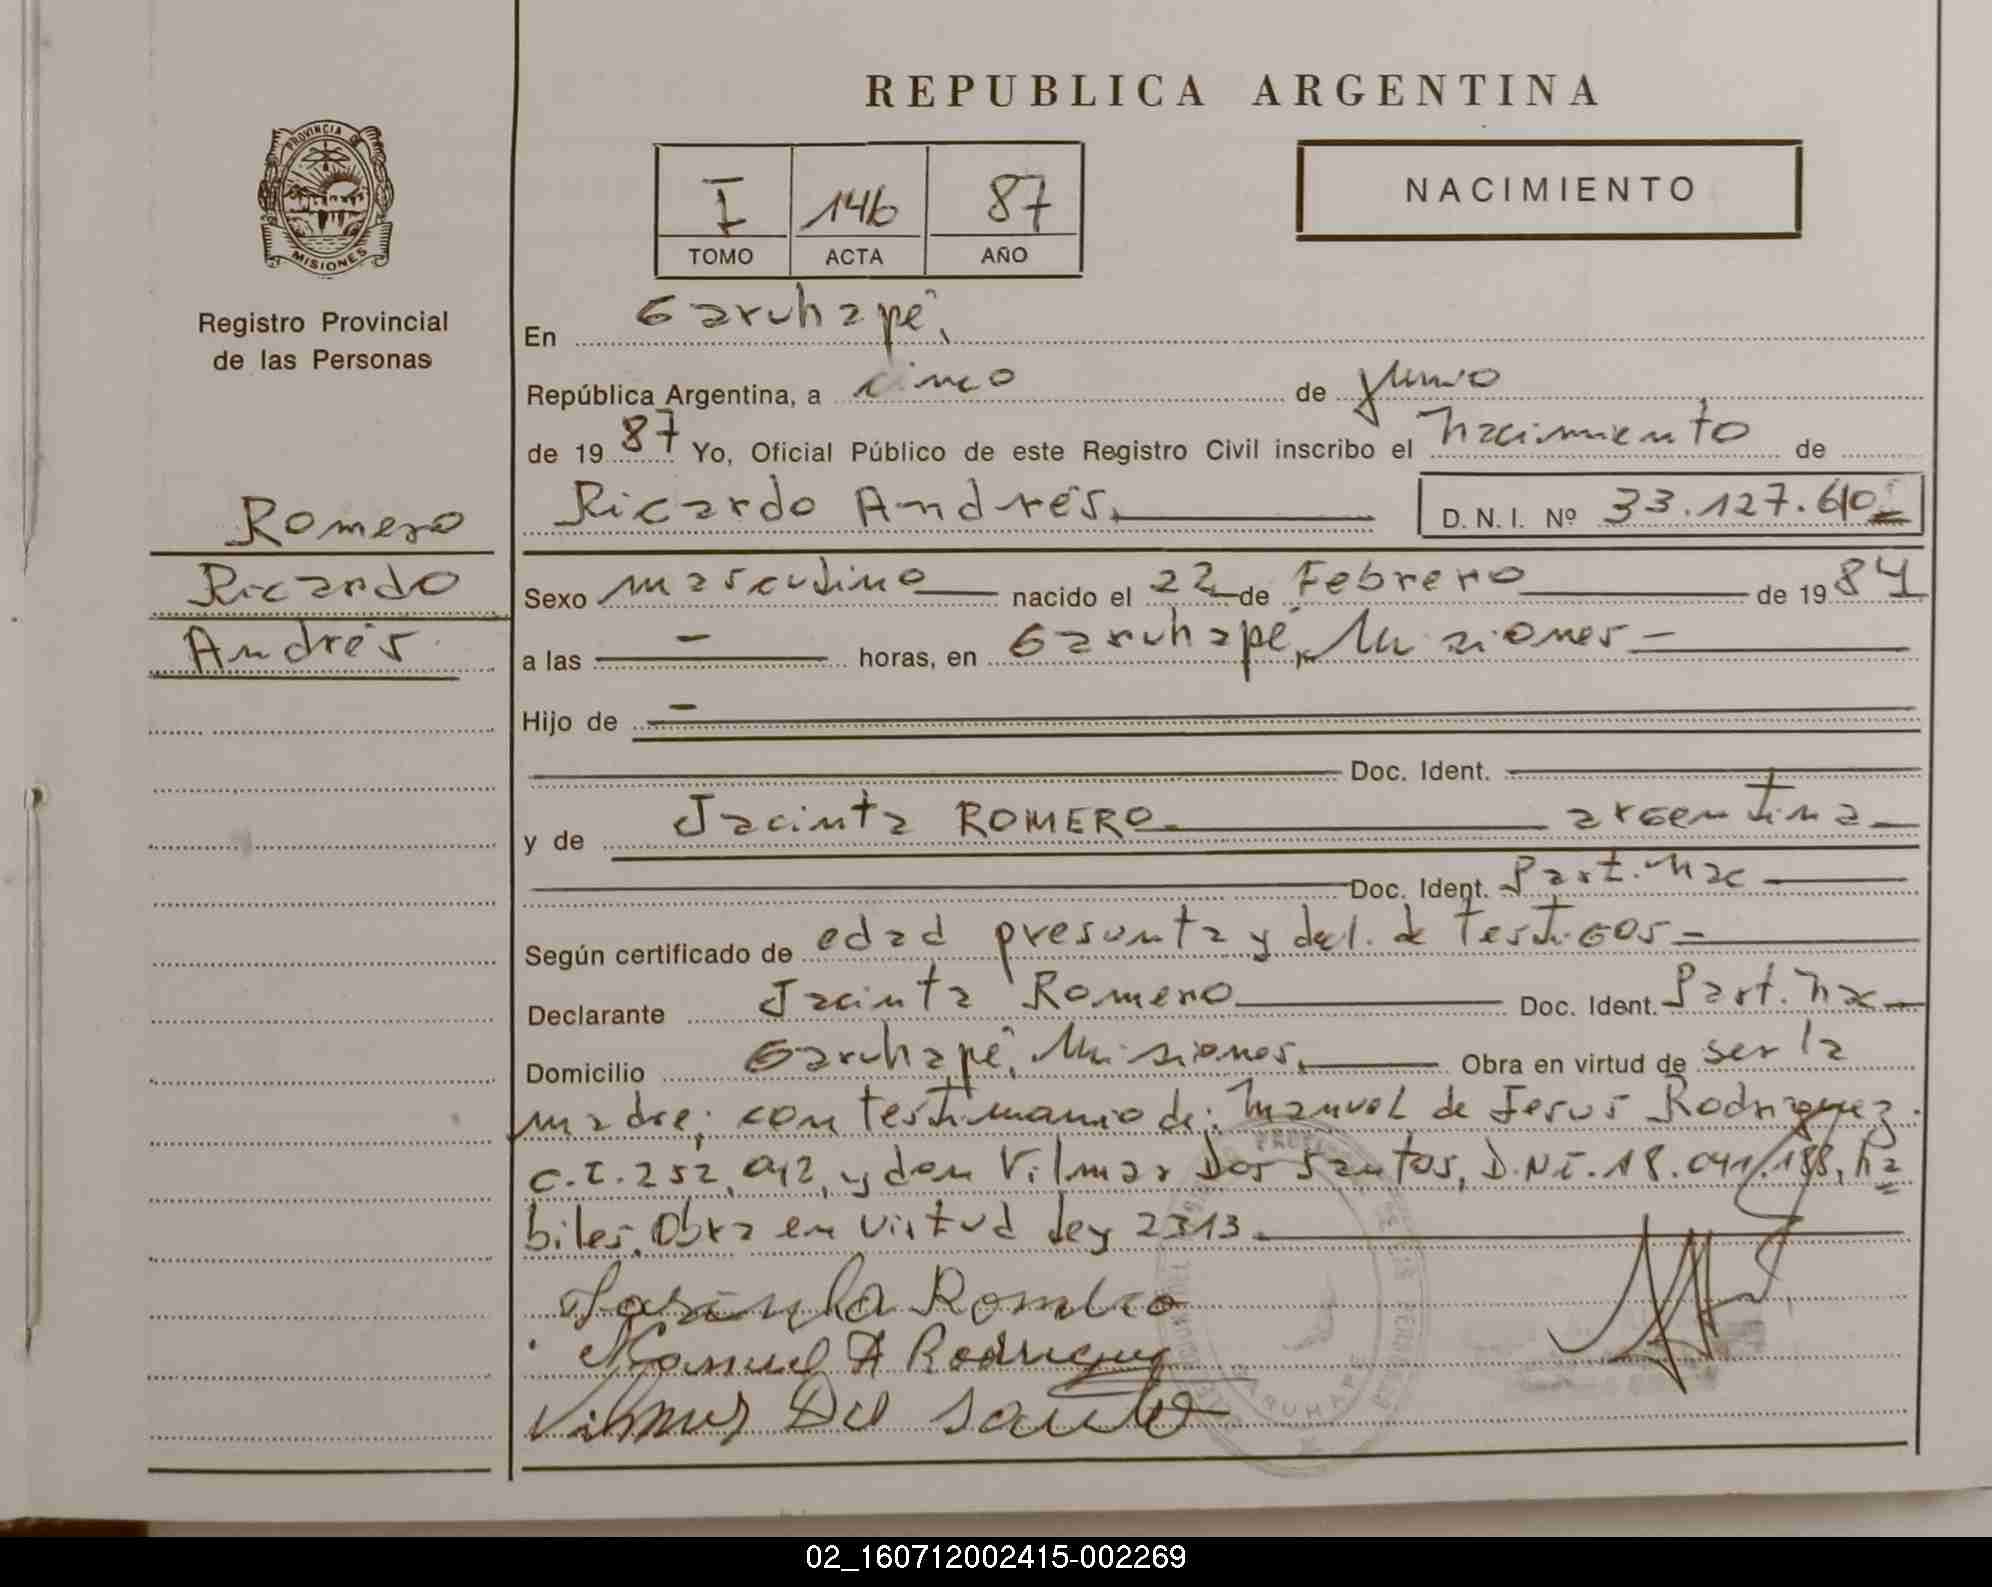 REPUBLICA ARGENTINA
PROVINCIA DE
MISIONES
Registro Provincial
de las Personas
I 146 87
TOMO ACTA AÑO
NACIMIENTO
En Garuhapé,
República Argentina, a cinco de junio
de 19 87 Yo, Oficial Público de este Registro Civil inscribo el nacimiento de
Ricardo Andrés.
D. N. I. Nº 33.127.610
Romero
Ricardo
Andrés
Sexo masculino nacido el 22 de Febrero de 19 84
a las - horas, en Garuhapé, Misiones -
Hijo de -
Doc. Ident.
y de Jacinta ROMERO argentina
Doc. Ident. Part. nac
Según certificado de edad presunta y decl. de testigos -
Declarante Jacinta Romero Doc. Ident. Part. nac
Domicilio Garuhapé, Misiones. Obra en virtud de ser la
madre; con testimonio de: Manuel de Jesus Rodriguez
C.I. 252.912, y don Vilmar Dos Santos, D.N.I. 18.041.188, há
biles. Obra en virtud ley 2313.
Jacinta Romero
Manuel A Rodriguez
Vilmar Dos Santos
GARUHAPE
02_160712002415-002269